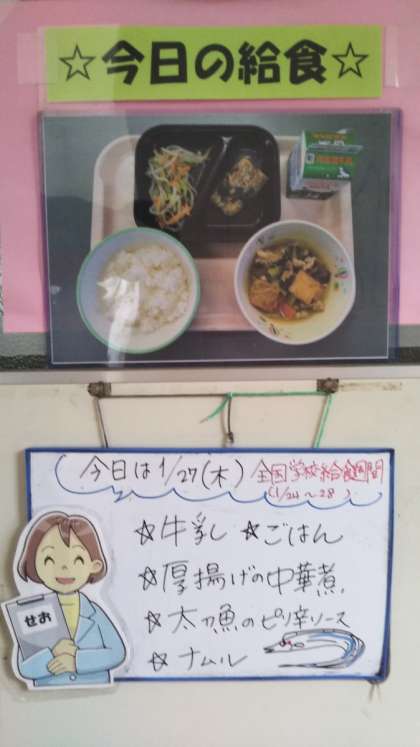 ☆今日の給食☆
今日は1/27(木) 全国学校給食週間
(1/24～28)
☆牛乳 ☆ごはん
☆厚揚げの中華煮
☆太刀魚のピリ辛ソース
☆ナムル
せお